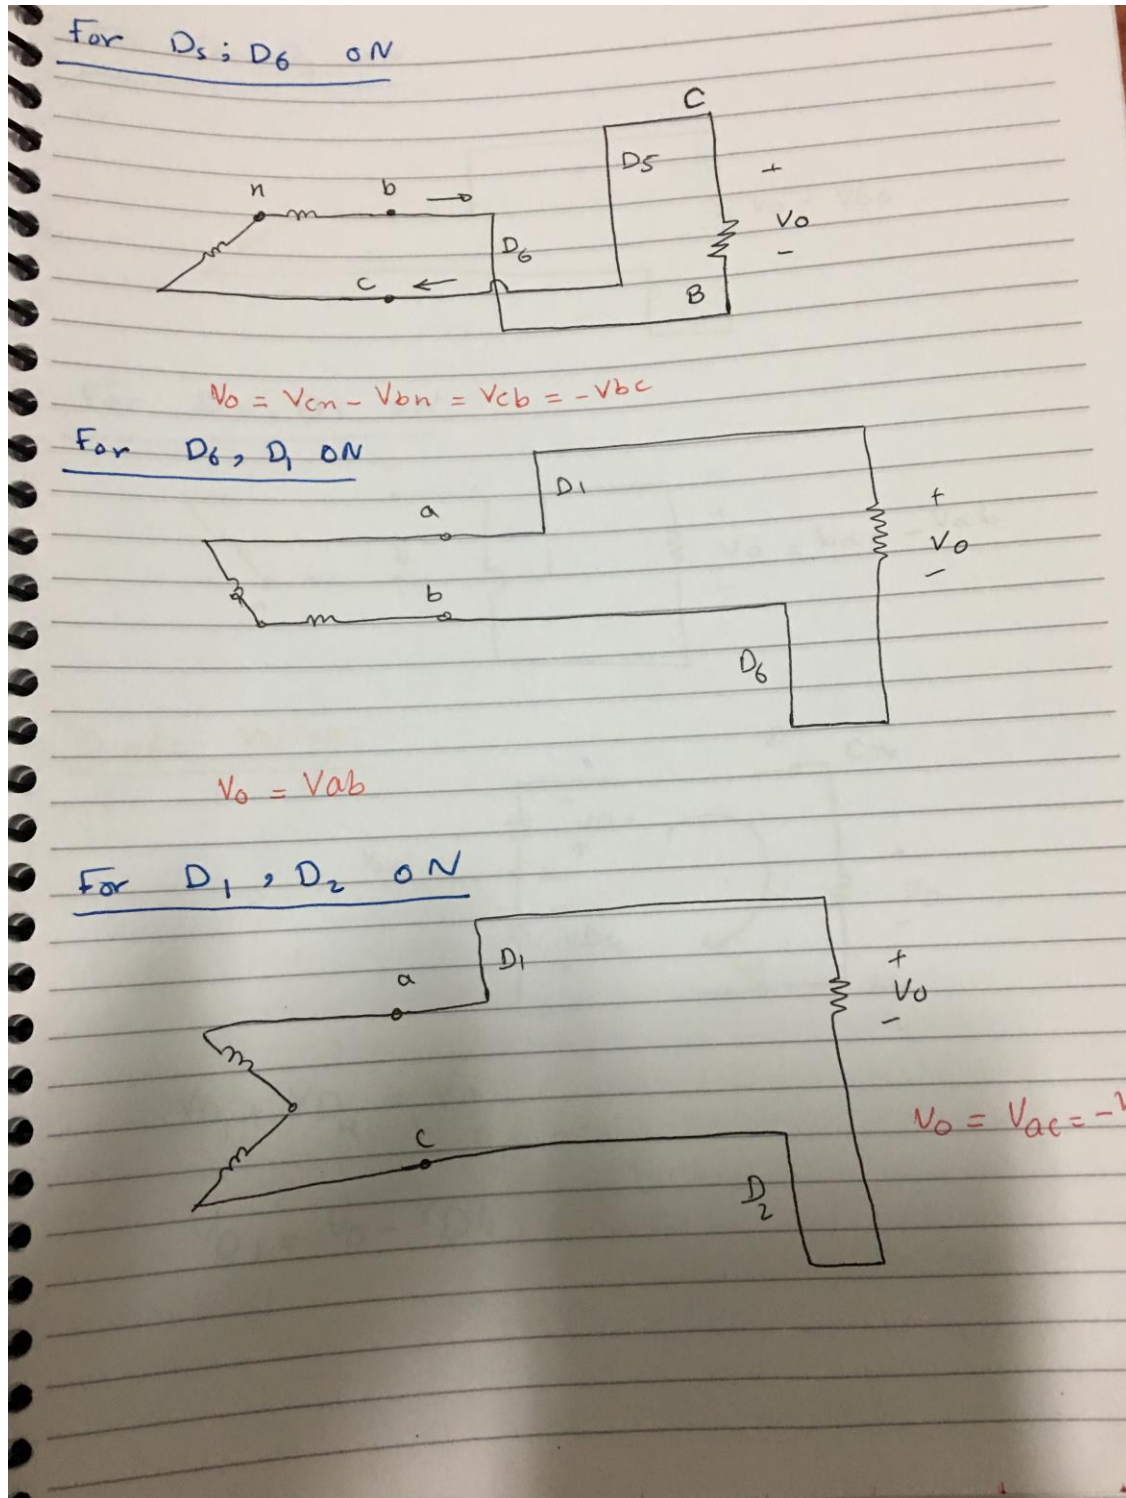 For D5 ; D6 ON
C
D5
+
n
b
Vo
D6
-
c
B
Vo = Vcn - Vbn = Vcb = -Vbc
For D6, D1 ON
D1
a
+
Vo
-
b
D6
Vo = Vab
For D1, D2 ON
D1
+
a
Vo
-
Vo = Vac = -V
c
D2